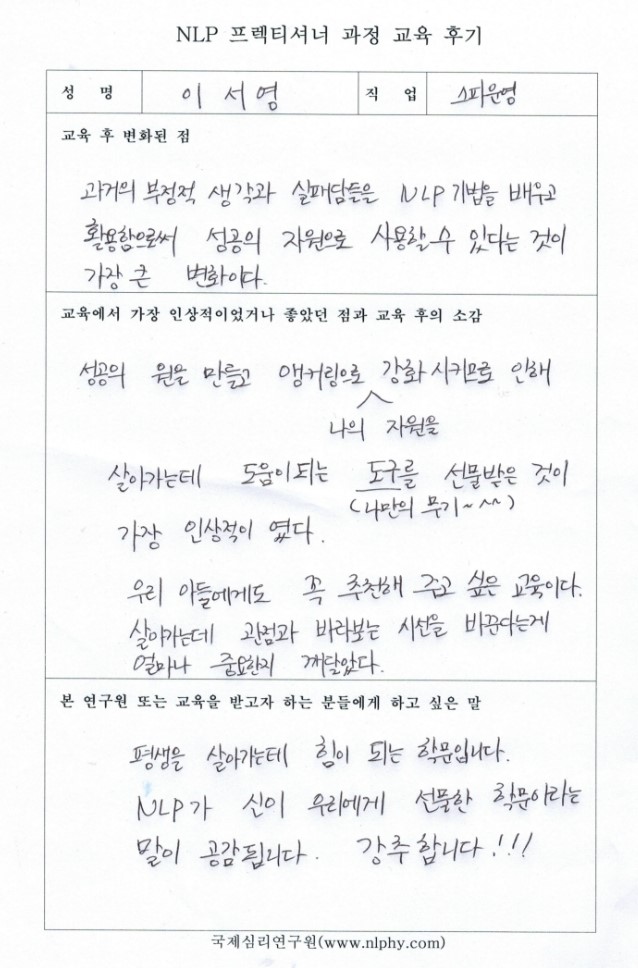 NLP 프렉티셔너 과정 교육 후기
성 명 이서영 직 업 스파운영
교육 후 변화된 점
과거의 부정적 생각과 실패담들을 NLP 기법을 배우고
활용함으로써 성공의 자원으로 사용할 수 있다는 것이
가장 큰 변화이다.
교육에서 가장 인상적이었거나 좋았던 점과 교육 후의 소감
성공의 원을 만들고 앵커링으로 강화시키므로 인해
나의 자원을
살아가는테 도움이 되는 도구를 선물받은 것이
(나만의 무기~^^)
가장 인상적이 였다.
우리 아들에게도 꼭 추천해 주고 싶은 교육이다.
살아가는데 관점과 바라보는 시선을 바꾼다는게
얼마나 중요한지 깨달았다.
본 연구원 또는 교육을 받고자 하는 분들에게 하고 싶은 말
평생을 살아가는테 힘이 되는 학문입니다.
NLP가 신이 우리에게 선물한 학문이라는
말이 공감됩니다. 강추합니다!!!
국제심리연구원(www.nlphy.com)